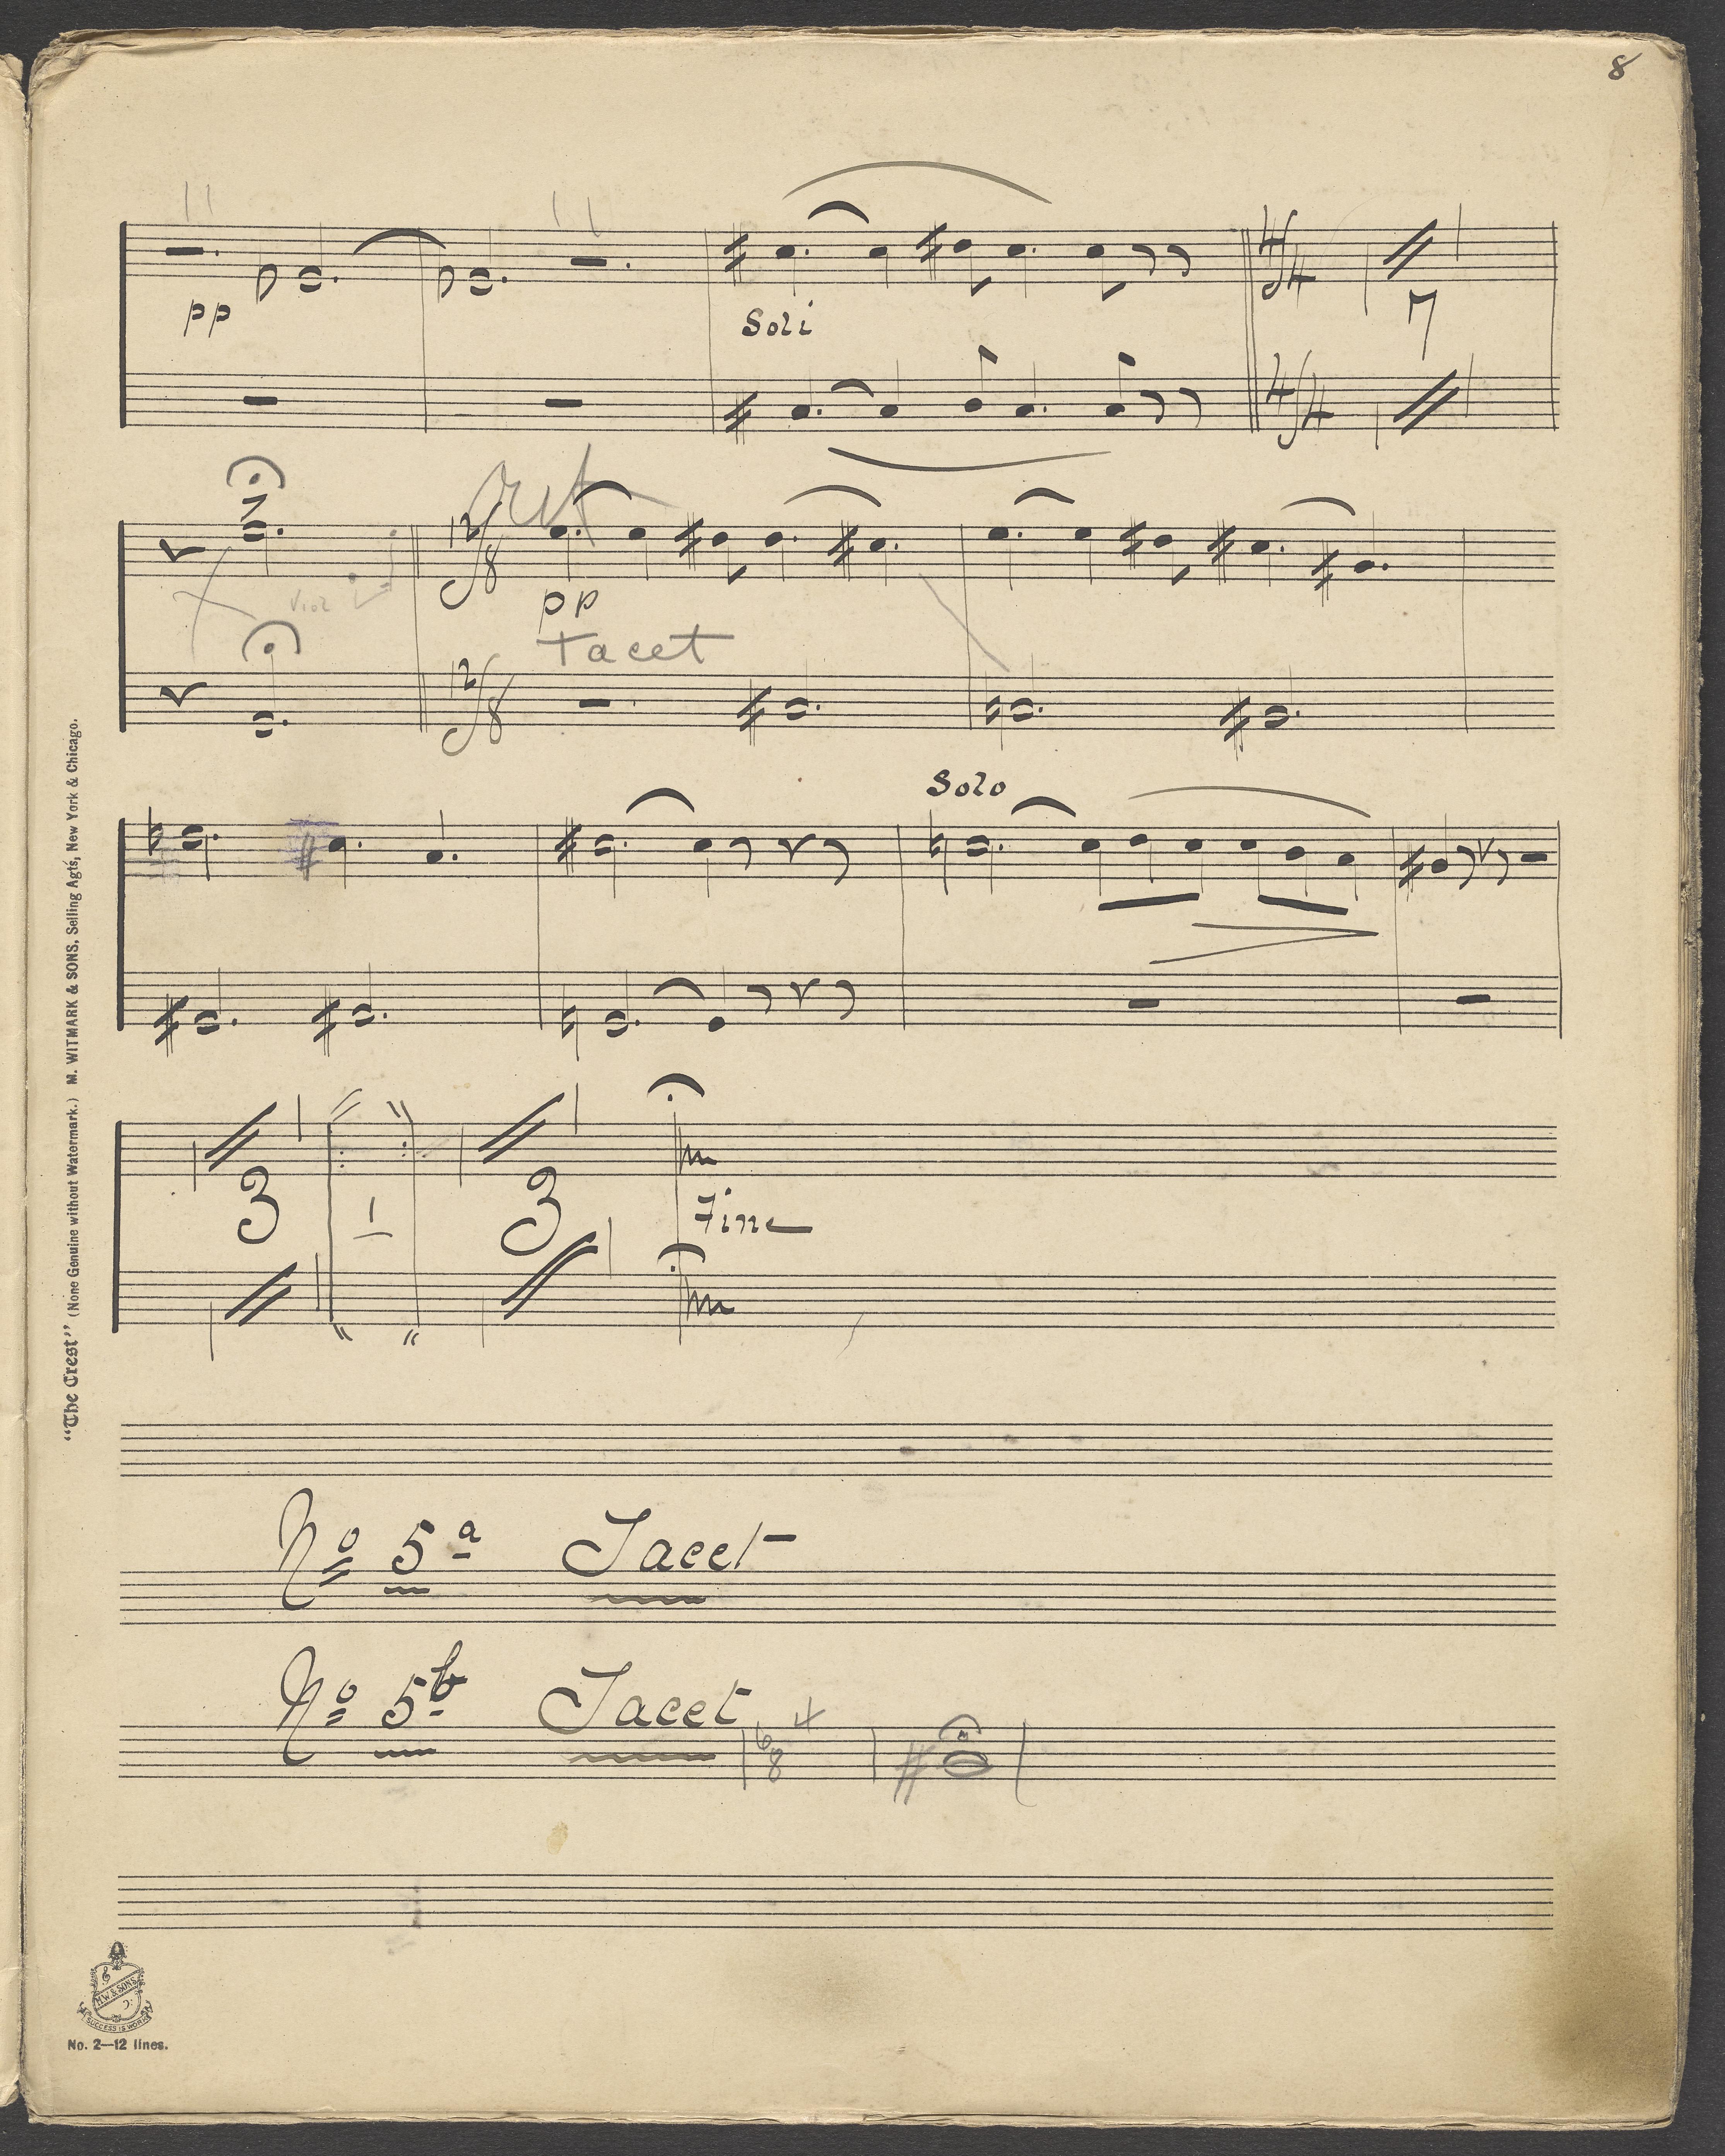 8
pp
Soli
4/4
7
4/4
Cut
12/8
Viol
pp
Tacet
12/8
Solo
3
1
3
Fine
No 5a Tacet
No 5b Tacet
6 8
4
"The Crest" (None Genuine without Watermark.) M. WITMARK & SONS, Selling Agts, New York & Chicago.
M.W & SONS
SUCCESS IS WORK
No. 2—12 lines.